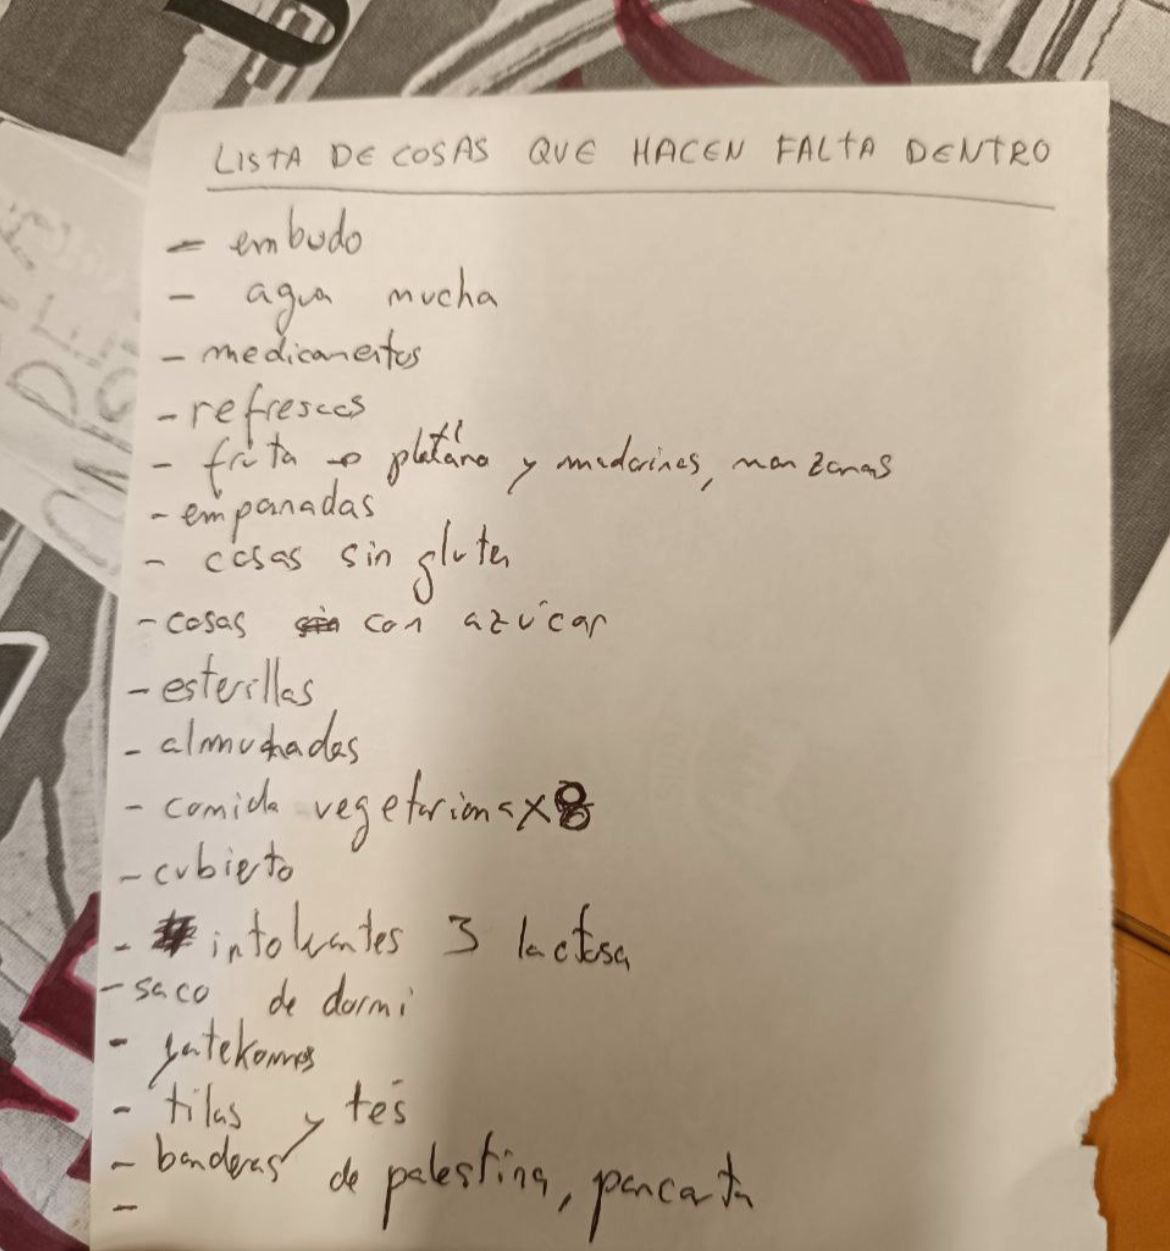 LISTA DE COSAS QUE HACEN FALTA DENTRO
- embudo
- agua mucha
- medicamentos
- refrescos
- fruta → platano y mandarinas, manzanas
- empanadas
- cosas sin gluten
- cosas con azúcar
- esterillas
- almuhadas
- comida vegetariana x 8
- cubierto
- intolerantes 3 lactosa
- saco de dormi
- yatekomos
- tilas y tés
- banderas de palestina, pancarta
-